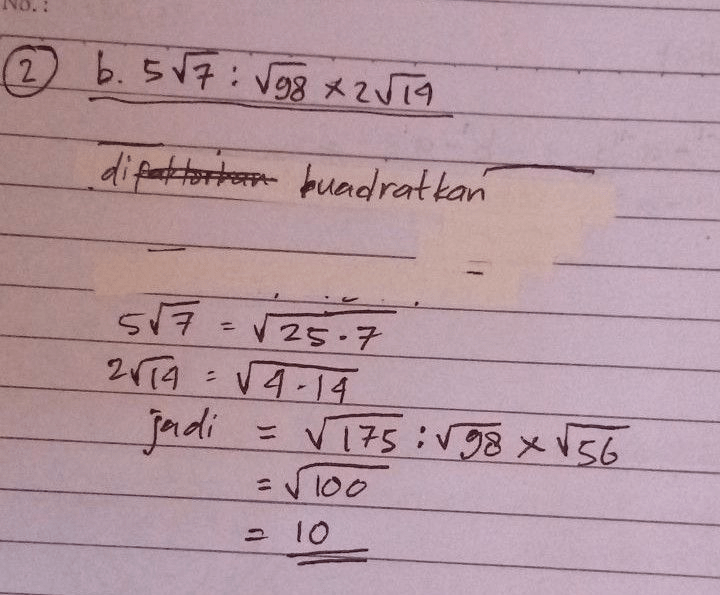 No.:
② b. 5√7 : √98 × 2√14
difaktorkan kuadratkan
5√7 = √25.7
2√14 = √4.14
jadi = √175 : √98 × √56
= √100
= 10